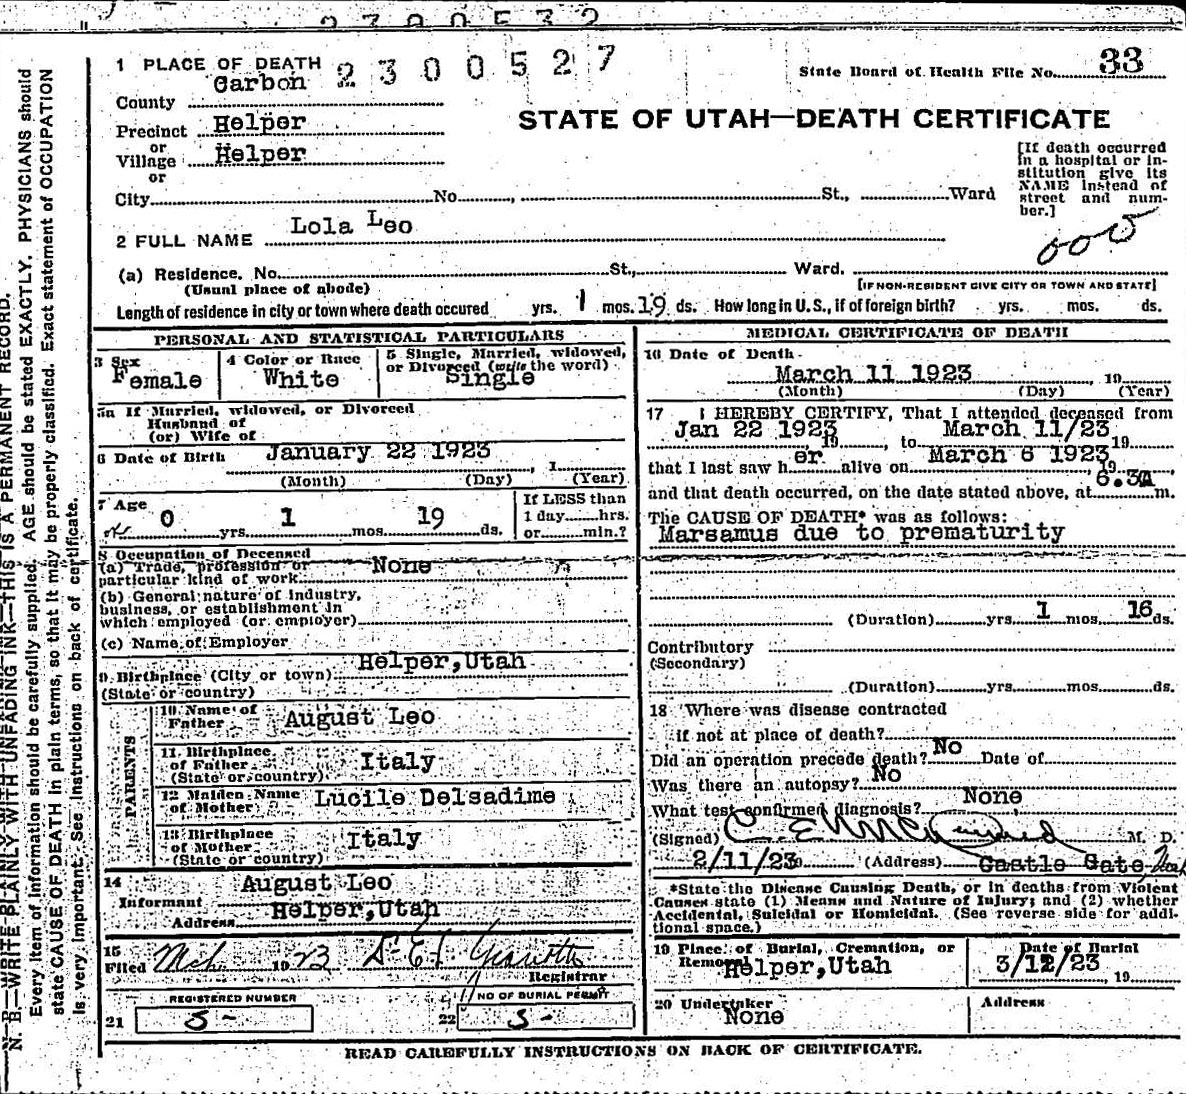 2300532
1 PLACE OF DEATH 2300527
State Board of Health File No. 33
County Carbon
Precinct Helper
STATE OF UTAH—DEATH CERTIFICATE
or
Village Helper
or
City No. St., Ward
[If death occurred
in a hospital or in-
stitution give its
NAME instead of
street and num-
ber.]
2 FULL NAME Lola Leo
000
(a) Residence. No. St., Ward.
(Usual place of abode) [IF NON-RESIDENT GIVE CITY OR TOWN AND STATE]
Length of residence in city or town where death occured yrs. 1 mos. 19 ds. How long in U.S., if of foreign birth? yrs. mos. ds.
PERSONAL AND STATISTICAL PARTICULARS
3 Sex
Female
4 Color or Race
White
5 Single, Married, widowed,
or Divorced (write the word)
Single
5a If Married, widowed, or Divorced
Husband of
(or) Wife of
6 Date of Birth January 22 1923, 1
(Month) (Day) (Year)
7 Age
0 yrs. 1 mos. 19 ds.
If LESS than
1 day hrs.
or min.?
8 Occupation of Deceased
(a) Trade, profession or
particular kind of work None
(b) General nature of industry,
business, or establishment in
which employed (or employer)
(c) Name of Employer
9 Birthplace (City or town) Helper,Utah
(State or country)
PARENTS
10 Name of
Father August Leo
11 Birthplace
of Father Italy
(State or country)
12 Maiden Name
of Mother Lucile Delsadime
13 Birthplace
of Mother Italy
(State or country)
14
Informant August Leo
Address Helper,Utah
15
Filed Mch 1923
Registrar
REGISTERED NUMBER
21 5-
NO OF BURIAL PERMIT
22 5-
MEDICAL CERTIFICATE OF DEATH
16 Date of Death
March 11 1923, 19
(Month) (Day) (Year)
17 I HEREBY CERTIFY, That I attended deceased from
Jan 22 1923 19, to March 11/23 19
that I last saw h er alive on March 6 1923, 19,
and that death occurred, on the date stated above, at 6.30 m.
The CAUSE OF DEATH* was as follows:
Marsamus due to prematurity
(Duration) yrs. 1 mos. 16 ds.
Contributory
(Secondary)
(Duration) yrs. mos. ds.
18 Where was disease contracted
if not at place of death?
Did an operation precede death? No Date of
Was there an autopsy? No
What test confirmed diagnosis? None
(Signed) M. D.
2/11/23 (Address) Castle Gate Utah
*State the Disease Causing Death, or in deaths from Violent
Causes state (1) Means and Nature of Injury; and (2) whether
Accidental, Suicidal or Homicidal. (See reverse side for addi-
tional space.)
19 Place of Burial, Cremation, or
Removal
Helper,Utah
Date of Burial
3/12/23, 19
20 Undertaker
None
Address
READ CAREFULLY INSTRUCTIONS ON BACK OF CERTIFICATE.
N. B.—WRITE PLAINLY WITH UNFADING INK—THIS IS A PERMANENT RECORD.
Every item of information should be carefully supplied. AGE should be stated EXACTLY. PHYSICIANS should
state CAUSE OF DEATH in plain terms, so that it may be properly classified. Exact statement of OCCUPATION
is very important. See instructions on back of certificate.